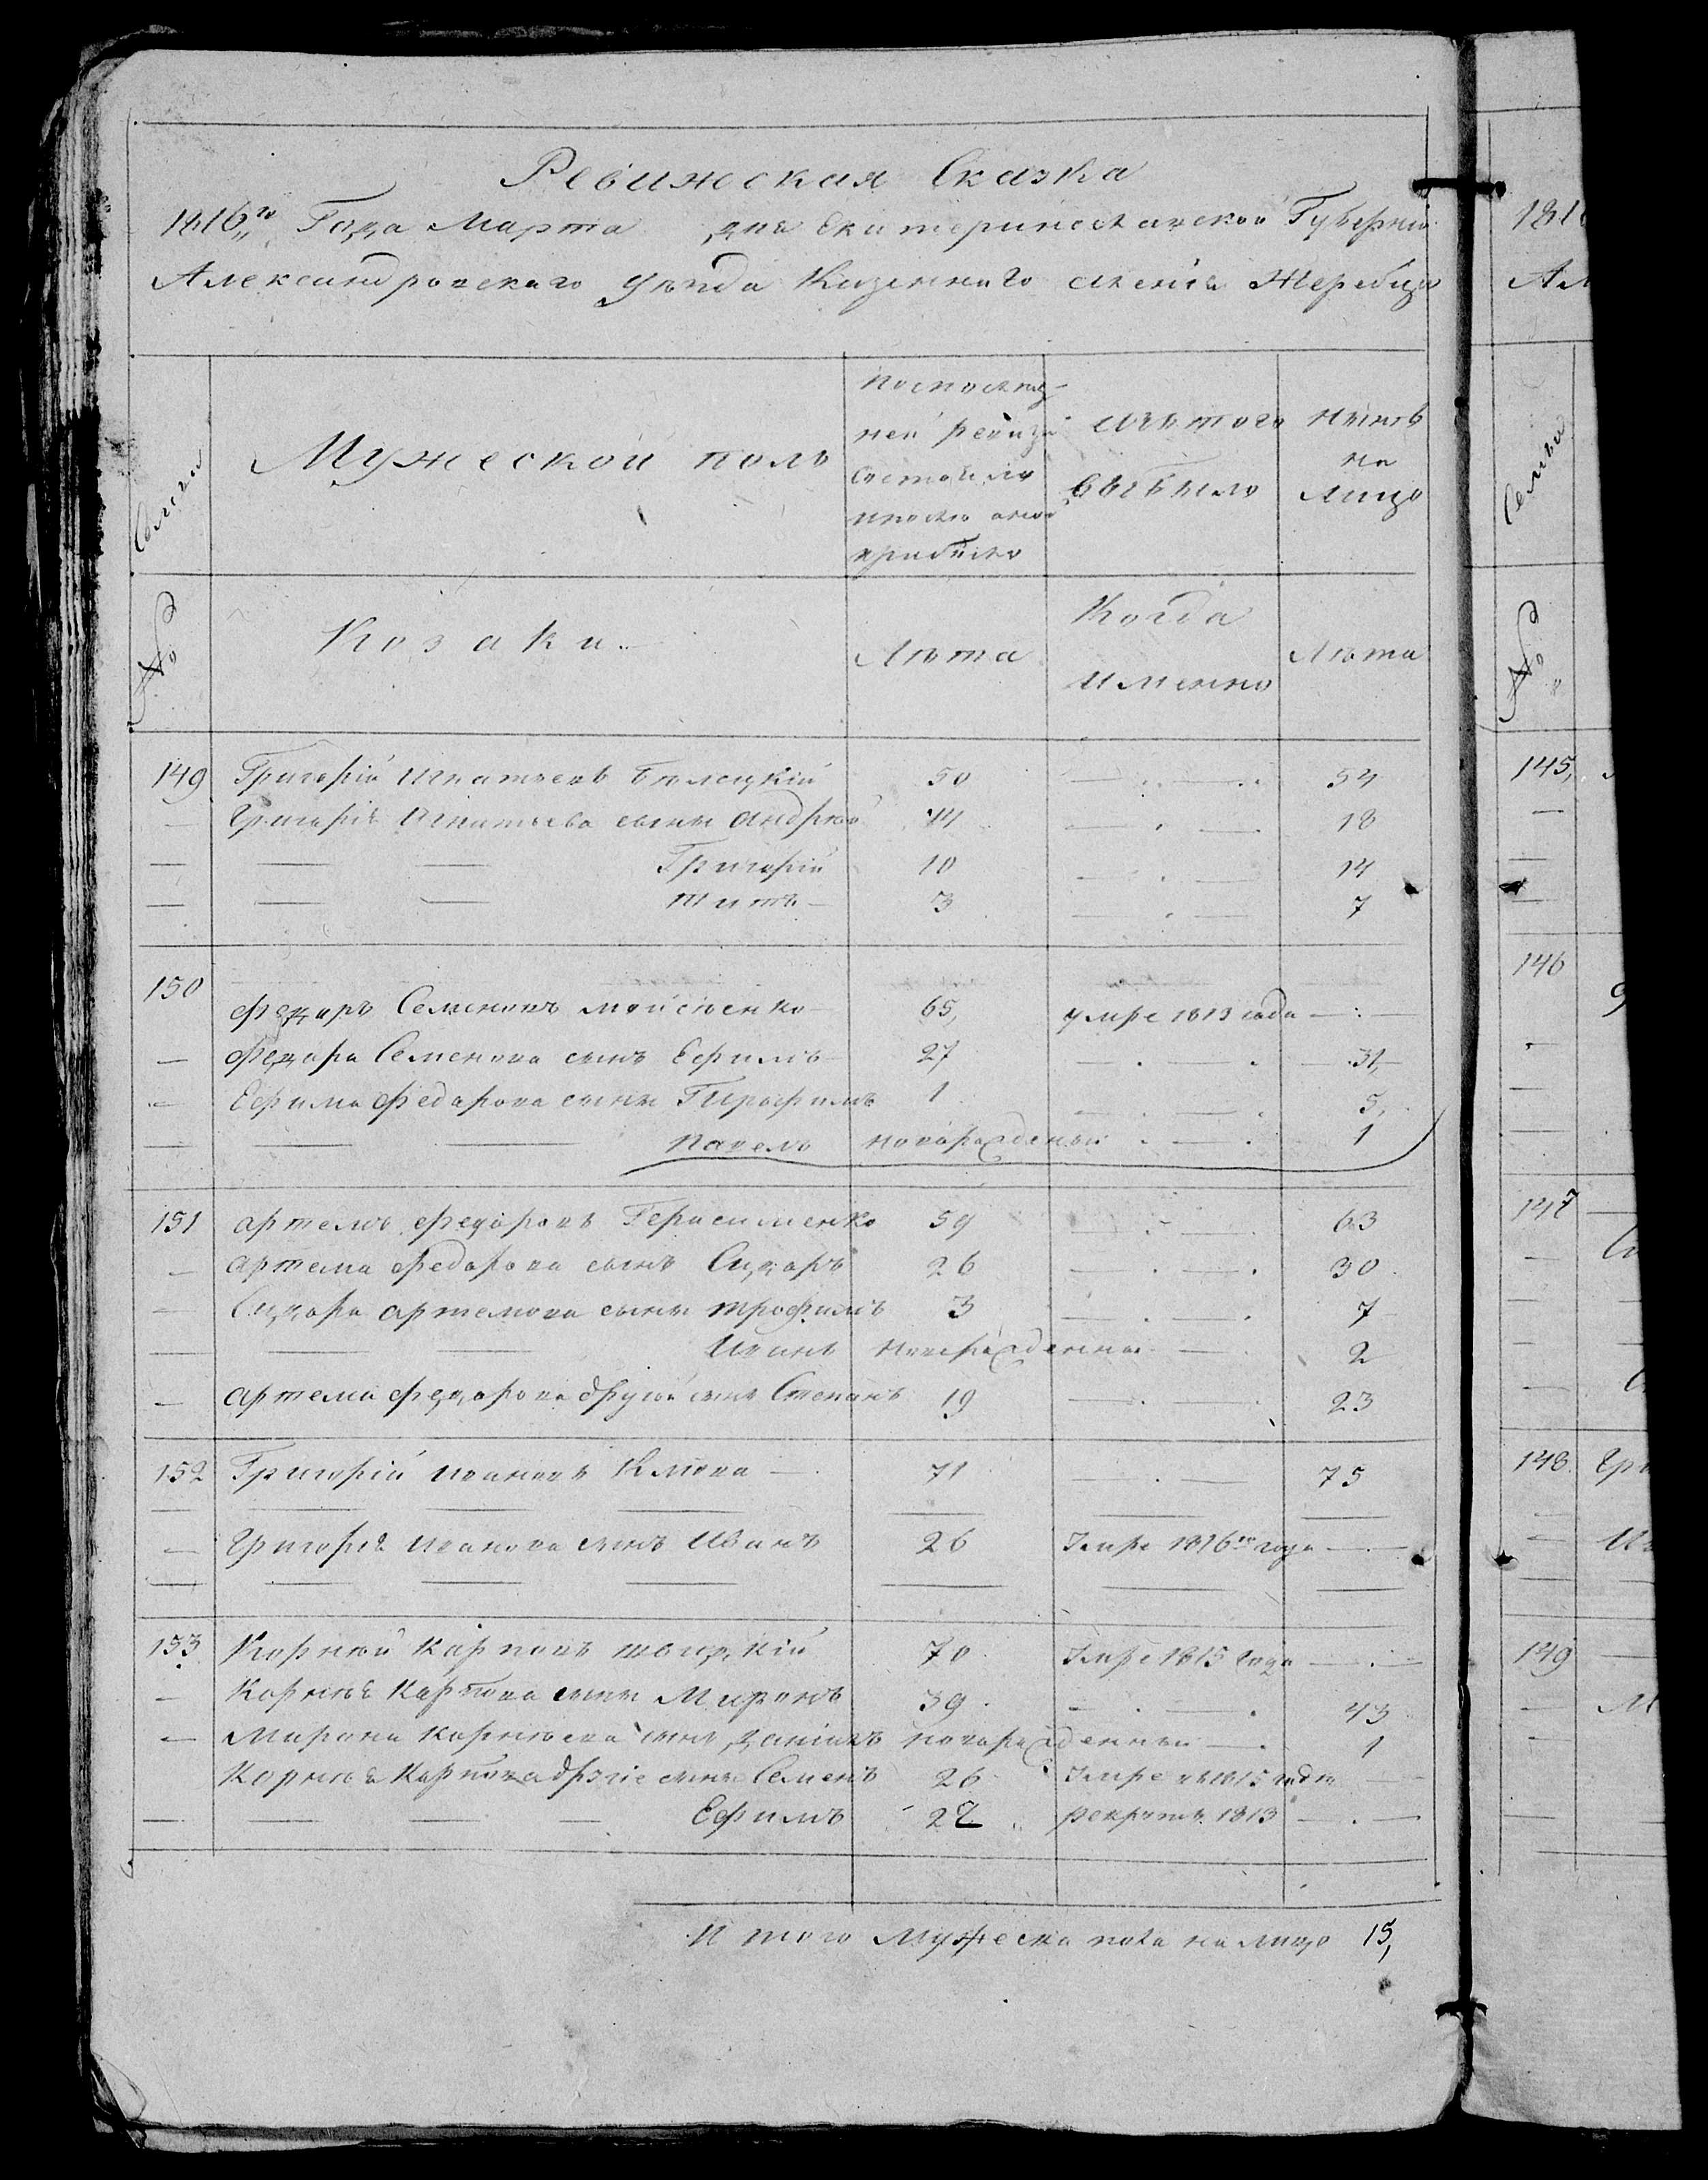 Ревижская Сказка
1816го Года Марта дня Екатеринославской Губернии
Александровского уезда Казенного селения Жеребца
Семьи
Мужеской полъ
По последней ревизіи состояло и после оной прибыло
изъ того выбыло
ныне на лицо
№
Козаки
Лѣта
Когда именно
Лѣта
149 Григорій Игнатьевъ Белецкій 50 54
Григорія Игнатьева сыны Андрей 14 18
Григорій 10 14
Титъ 3 7
150
Федоръ Семеновъ Мойсеенко 65, умре 1813 года
Федора Семенова сынъ Ефимъ 27 31,
Ефима Федорова сыны 1 5,
Павелъ новорожденный 1
151 Артемъ Федоровъ Герасименко 59 63
Артема Федорова сынъ Сидоръ 26 30
Сидора Артемова сыны Трофимъ 3 7
Иванъ новорожденный 2
Артема Федорова другой сынъ Степанъ 19 23
152 Григорій Ивановъ 71 75
Григорія Иванова сынъ Иванъ 26 Умре 1816го года
153 Корней Карповъ 70 Умре 1815 года
Корнея Карпова сыны Миронъ 39 43
Мирона Корнеева сынъ Данило новорожденный 1
Корнея Карпова другіе сыны Семенъ 26 Умре въ 1815 годе
Ефимъ 22 рекрутъ 1813
И того мужеска пола на лицо 15,
181
Ал
Семьи
№
145,
146
147
148. Гри
149